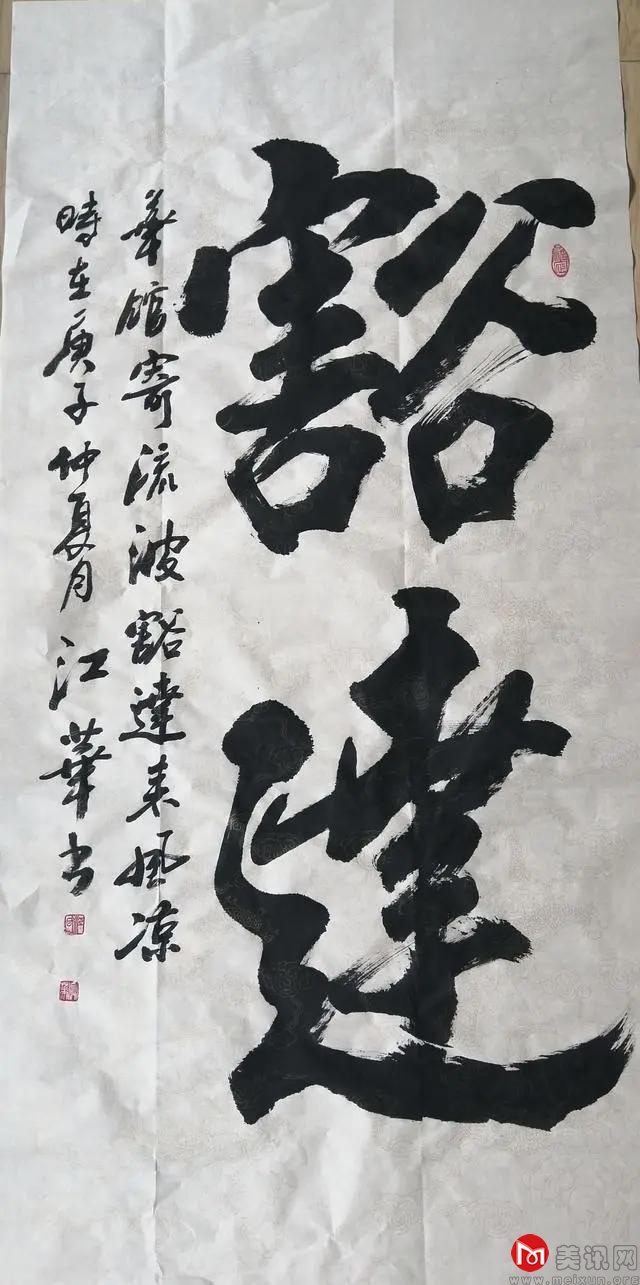 豁達
華館寄流波豁達來風涼
時在庚子仲夏月江華書
美讯网
www.meixun.org